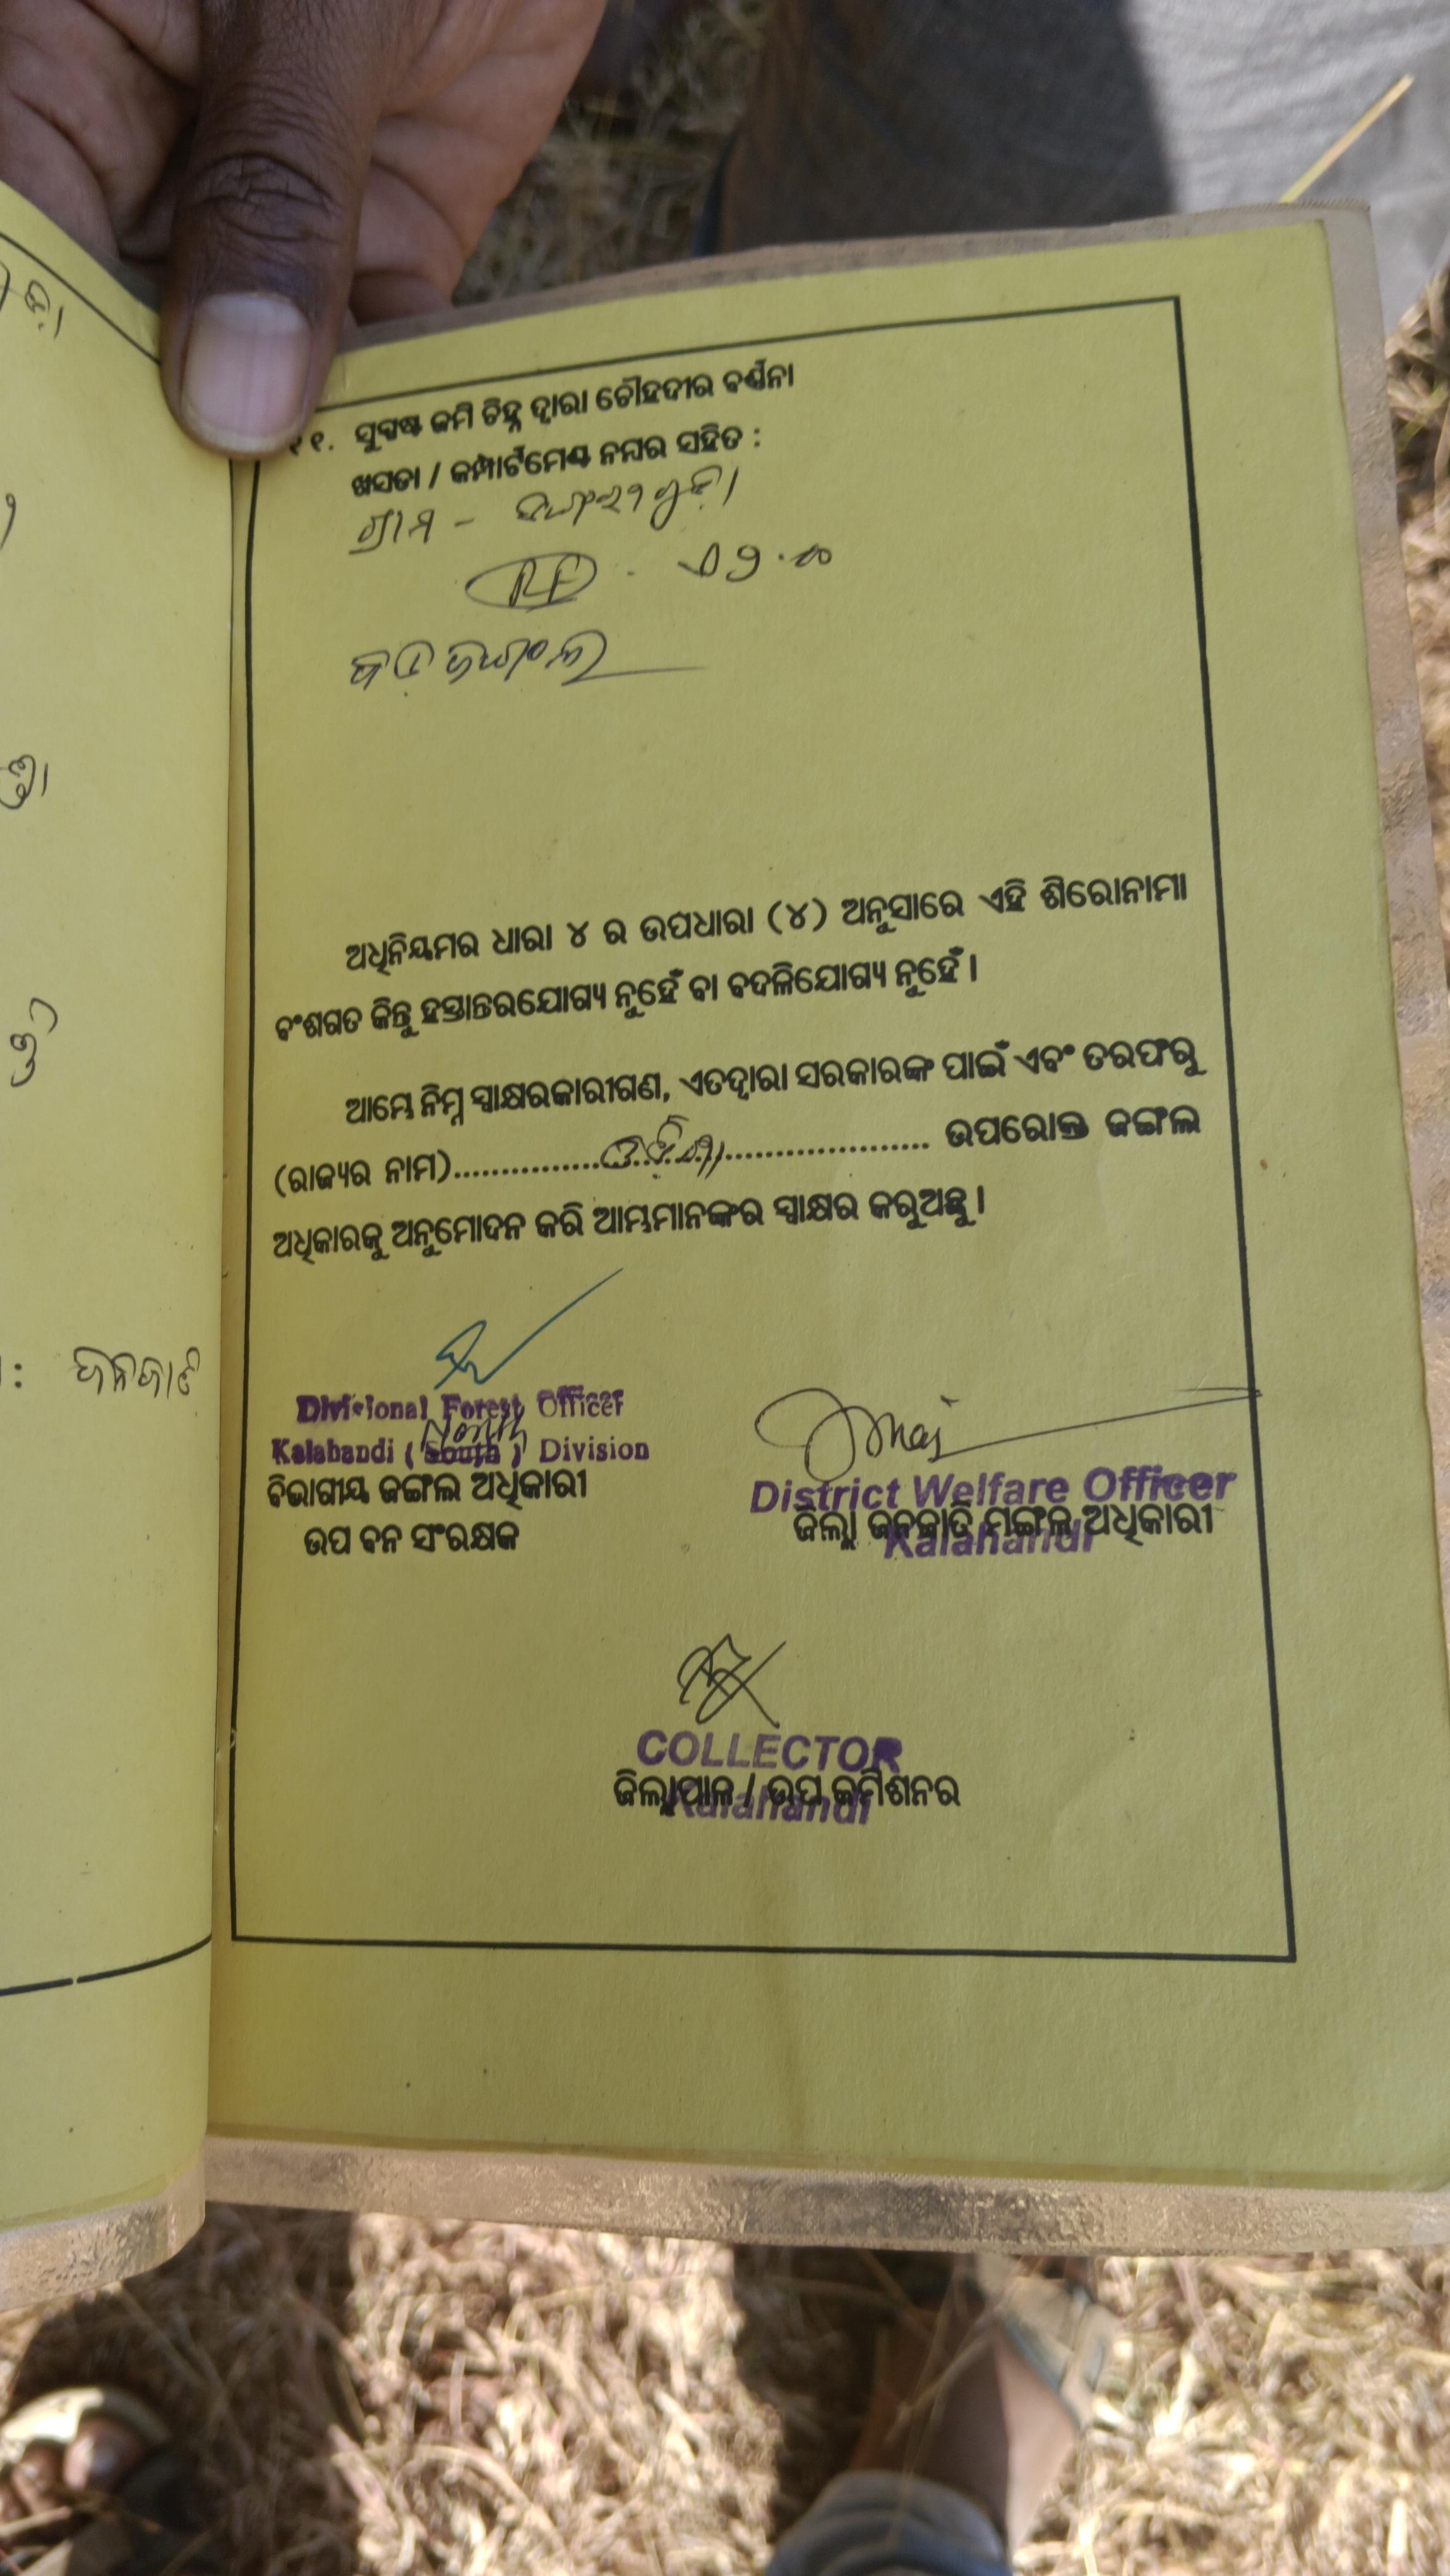 ୧୧. ସୁସ୍ପଷ୍ଟ ଜମି ଚିହ୍ନ ଦ୍ୱାରା ଚୌହଦୀର ବର୍ଣ୍ଣନା
ଖସଡା / କମ୍ପାର୍ଟମେଣ୍ଟ ନମ୍ବର ସହିତ :
ଗ୍ରାମ -
RF
ଅଧିନିୟମର ଧାରା ୪ ର ଉପଧାରା (୪) ଅନୁସାରେ ଏହି ଶିରୋନାମା
ବଂଶଗତ କିନ୍ତୁ ହସ୍ତାନ୍ତରଯୋଗ୍ୟ ନୁହେଁ ବା ବଦଳିଯୋଗ୍ୟ ନୁହେଁ ।
ଆମ୍ଭେ ନିମ୍ନ ସ୍ୱାକ୍ଷରକାରୀଗଣ, ଏତଦ୍ୱାରା ସରକାରଙ୍କ ପାଇଁ ଏବଂ ତରଫରୁ
(ରାଜ୍ୟର ନାମ)...............ଓଡ଼ିଶା...................... ଉପରୋକ୍ତ ଜଙ୍ଗଲ
ଅଧିକାରକୁ ଅନୁମୋଦନ କରି ଆମ୍ଭମାନଙ୍କର ସ୍ୱାକ୍ଷର କରୁଅଛୁ ।
Divisional Forest Officer
North
Kalahandi (South) Division
ବିଭାଗୀୟ ଜଙ୍ଗଲ ଅଧିକାରୀ
ଉପ ବନ ସଂରକ୍ଷକ
District Welfare Officer
ଜିଲ୍ଲା ଜନଜାତି ମଙ୍ଗଳ ଅଧିକାରୀ
Kalahandi
COLLECTOR
ଜିଲ୍ଲାପାଳ / ଉପ କମିଶନର
Kalahandi